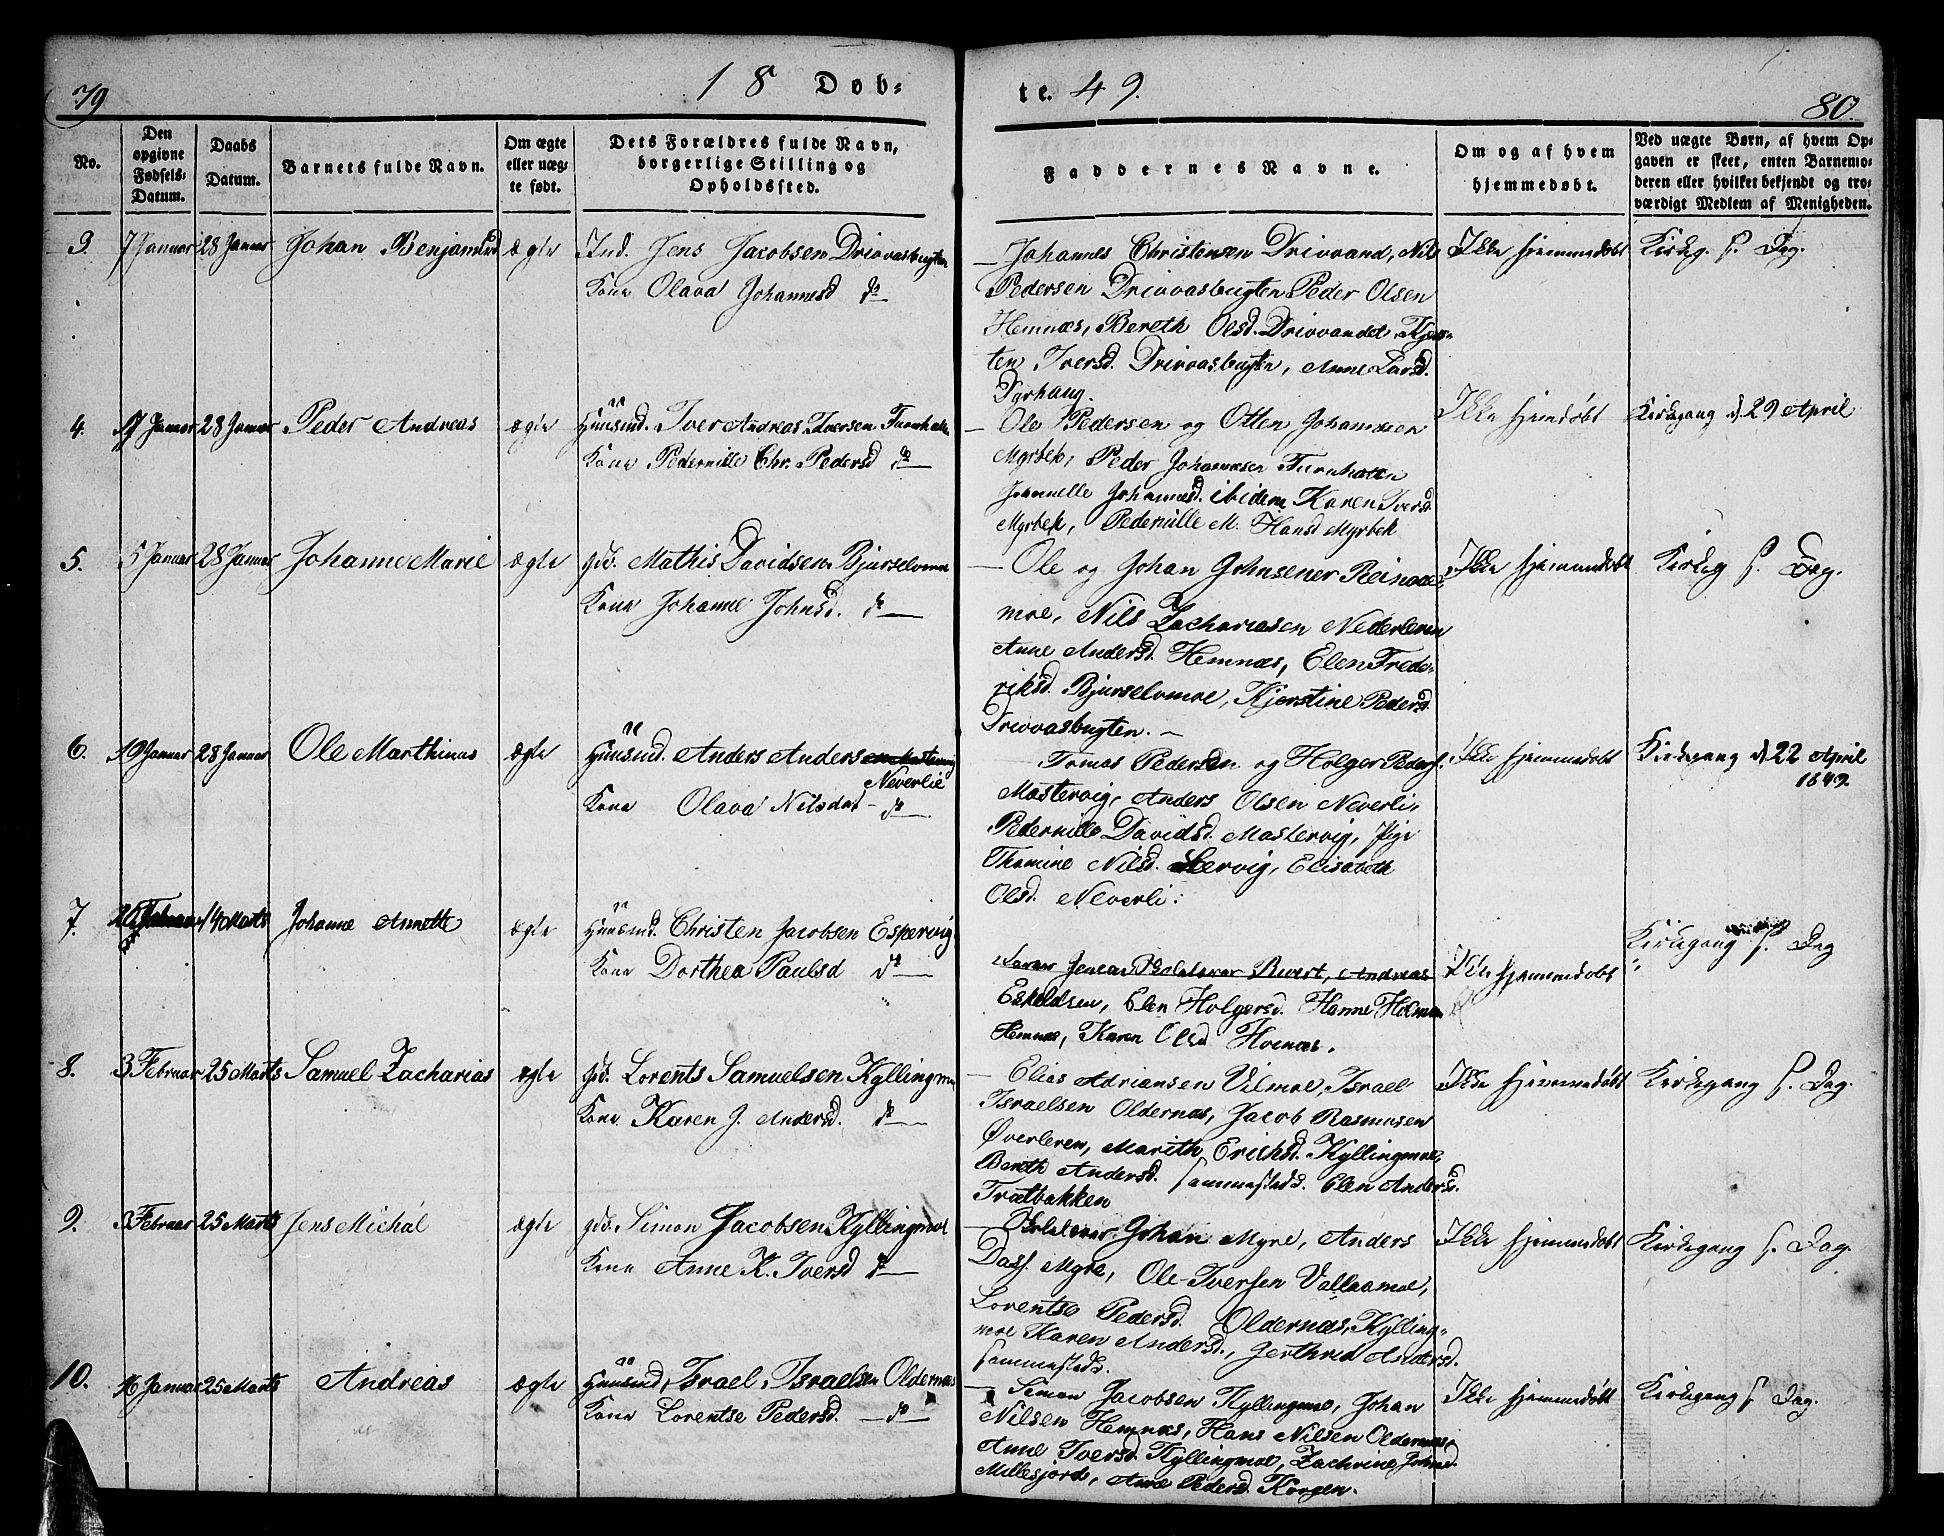 79
18 Døb-
te. 49.
80.
No.
Den opgivne Fødsels-Datum.
Daabs Datum.
Barnets fulde Navn.
Om ægte eller uæg-te født.
Dets Forældres fulde Navn, borgerlige Stilling og Opholdssted.
Faddernes Navne.
Om og af hvem hjemmedøbt.
Ved uægte Børn, af hvem Op-gaven er skeet, enten Barnemo-deren eller hvilket bekjendt og tro-værdigt Medlem af Menigheden.
3. 7 Januar 28 Januar Johan Benjamin ægte Ind. Jens Jacobsen Drivvasbugten
Kone Olava Johannesd do
Johannes Christensen Drivvand, Nils
Pedersen Drivvasbugten Peder Olsen
Hemnæs, Bereth Olsd. Drivvandet, Kjers-
ten Iversd. Drivvasbugten, Anne Larsd.
Dyrhaug.
Ikke hjemmedøbt
Kirkeg. s. Dag.
4. 17 Januar 28 Januar Peder Andreas ægte Huusmd. Iver Andreas Iversen
Kone Pedernille Chr. Pedersd do
Ole Pedersen og Otten Johannesen
Myrbek, Peder Johannesen
Johannesd. ibidem Karen Iversd
Myrbek, Pedernille M. Hansd Myrbek
Ikke hjemdøbt
Kirkegang d. 29 April
5. 5 Januar 28 Januar Johanne Marie ægte gd. Mathis Davidsen Bjurselvmoe
Kone Johanne Johnsd. do
Ole og Johan Johnsener Reinaa-
moe, Nils Zachariasen Nederleren
Anne Andersd. Hemnæs, Elen Frede-
riksd. Bjurselvmoe, Kjerstine Pedersd
Drivvasbugten.
Ikke hjemmedøbt
Kirkeg s. Dag.
6. 19 Januar 28 Januar Ole Marthinus ægte Huusmd. Anders Andersen Mastervig
Neverlie
Kone Olava Nilsdat do
Tomas Pedersen og Holger Peders.
Mastervig, Anders Olsen Neverli,
Pedernille Davidsd. Mastervig, Pige
Thomine Nilsd. Lervig, Elisabeth
Olsd. Neverli.
Ikke hjemmedøbt
Kirkegang d. 22 April
1849.
7. Februar 14 Marts Johanne Annette ægte Huusmd. Christen Jacobsen Espervig
Kone Dorthea Paulsd do
Andreas
Eskeldsen, Elen Holgersd. Hanne Holman
Hemnæs, Karen Olsd
Ikke hjemmedøbt
Kirkegang s. Dag
8. 3 Februar 25 Marts Samuel Zacharias ægte gd. Lorents Samuelsen Kyllingmoe
Kone Karen J. Andersd. do
Elias Adriansen Vilmoe, Israel
Israelsen Oldernæs, Jacob Rasmusen
Øverleren, Marith Ericksd. Kyllingmoe,
Bereth Andersd. sammesteds. Elen Andersd.
Trætbakken
Ikke hjemmedøbt
Kirkegang s. Dag.
9. 3 Februar 25 Marts Jens Michal ægte gd. Simon Jacobsen Kyllingmoe
Kone Anne K. Iversd do
Johan Myre, Anders
Dass. Myre, Ole Iversen Vallaamoe,
Lorentse Pedersd. Oldernæs, Kylling-
moe Karen Andersd., Gerthrud Andersd.
sammesteds.
Ikke hjemmedøbt
Kirkegang s. Dag.
10. 16 Januar 25 Marts Andreas ægte Huusmd, Israel Israelsen Oldernæs
Kone Lorentse Pedersd. do
Simon Jacobsen Kyllingmoe, Johan
Nilsen Hemnæs, Hans Nilsen Oldernæs,
Anne Iversd. Kyllingmoe, Zachrine Johnsd.
Millesjord, Anne Pedersd. Korgen.
Ikke hjemmedøbt
Kirkegang s. Dag.